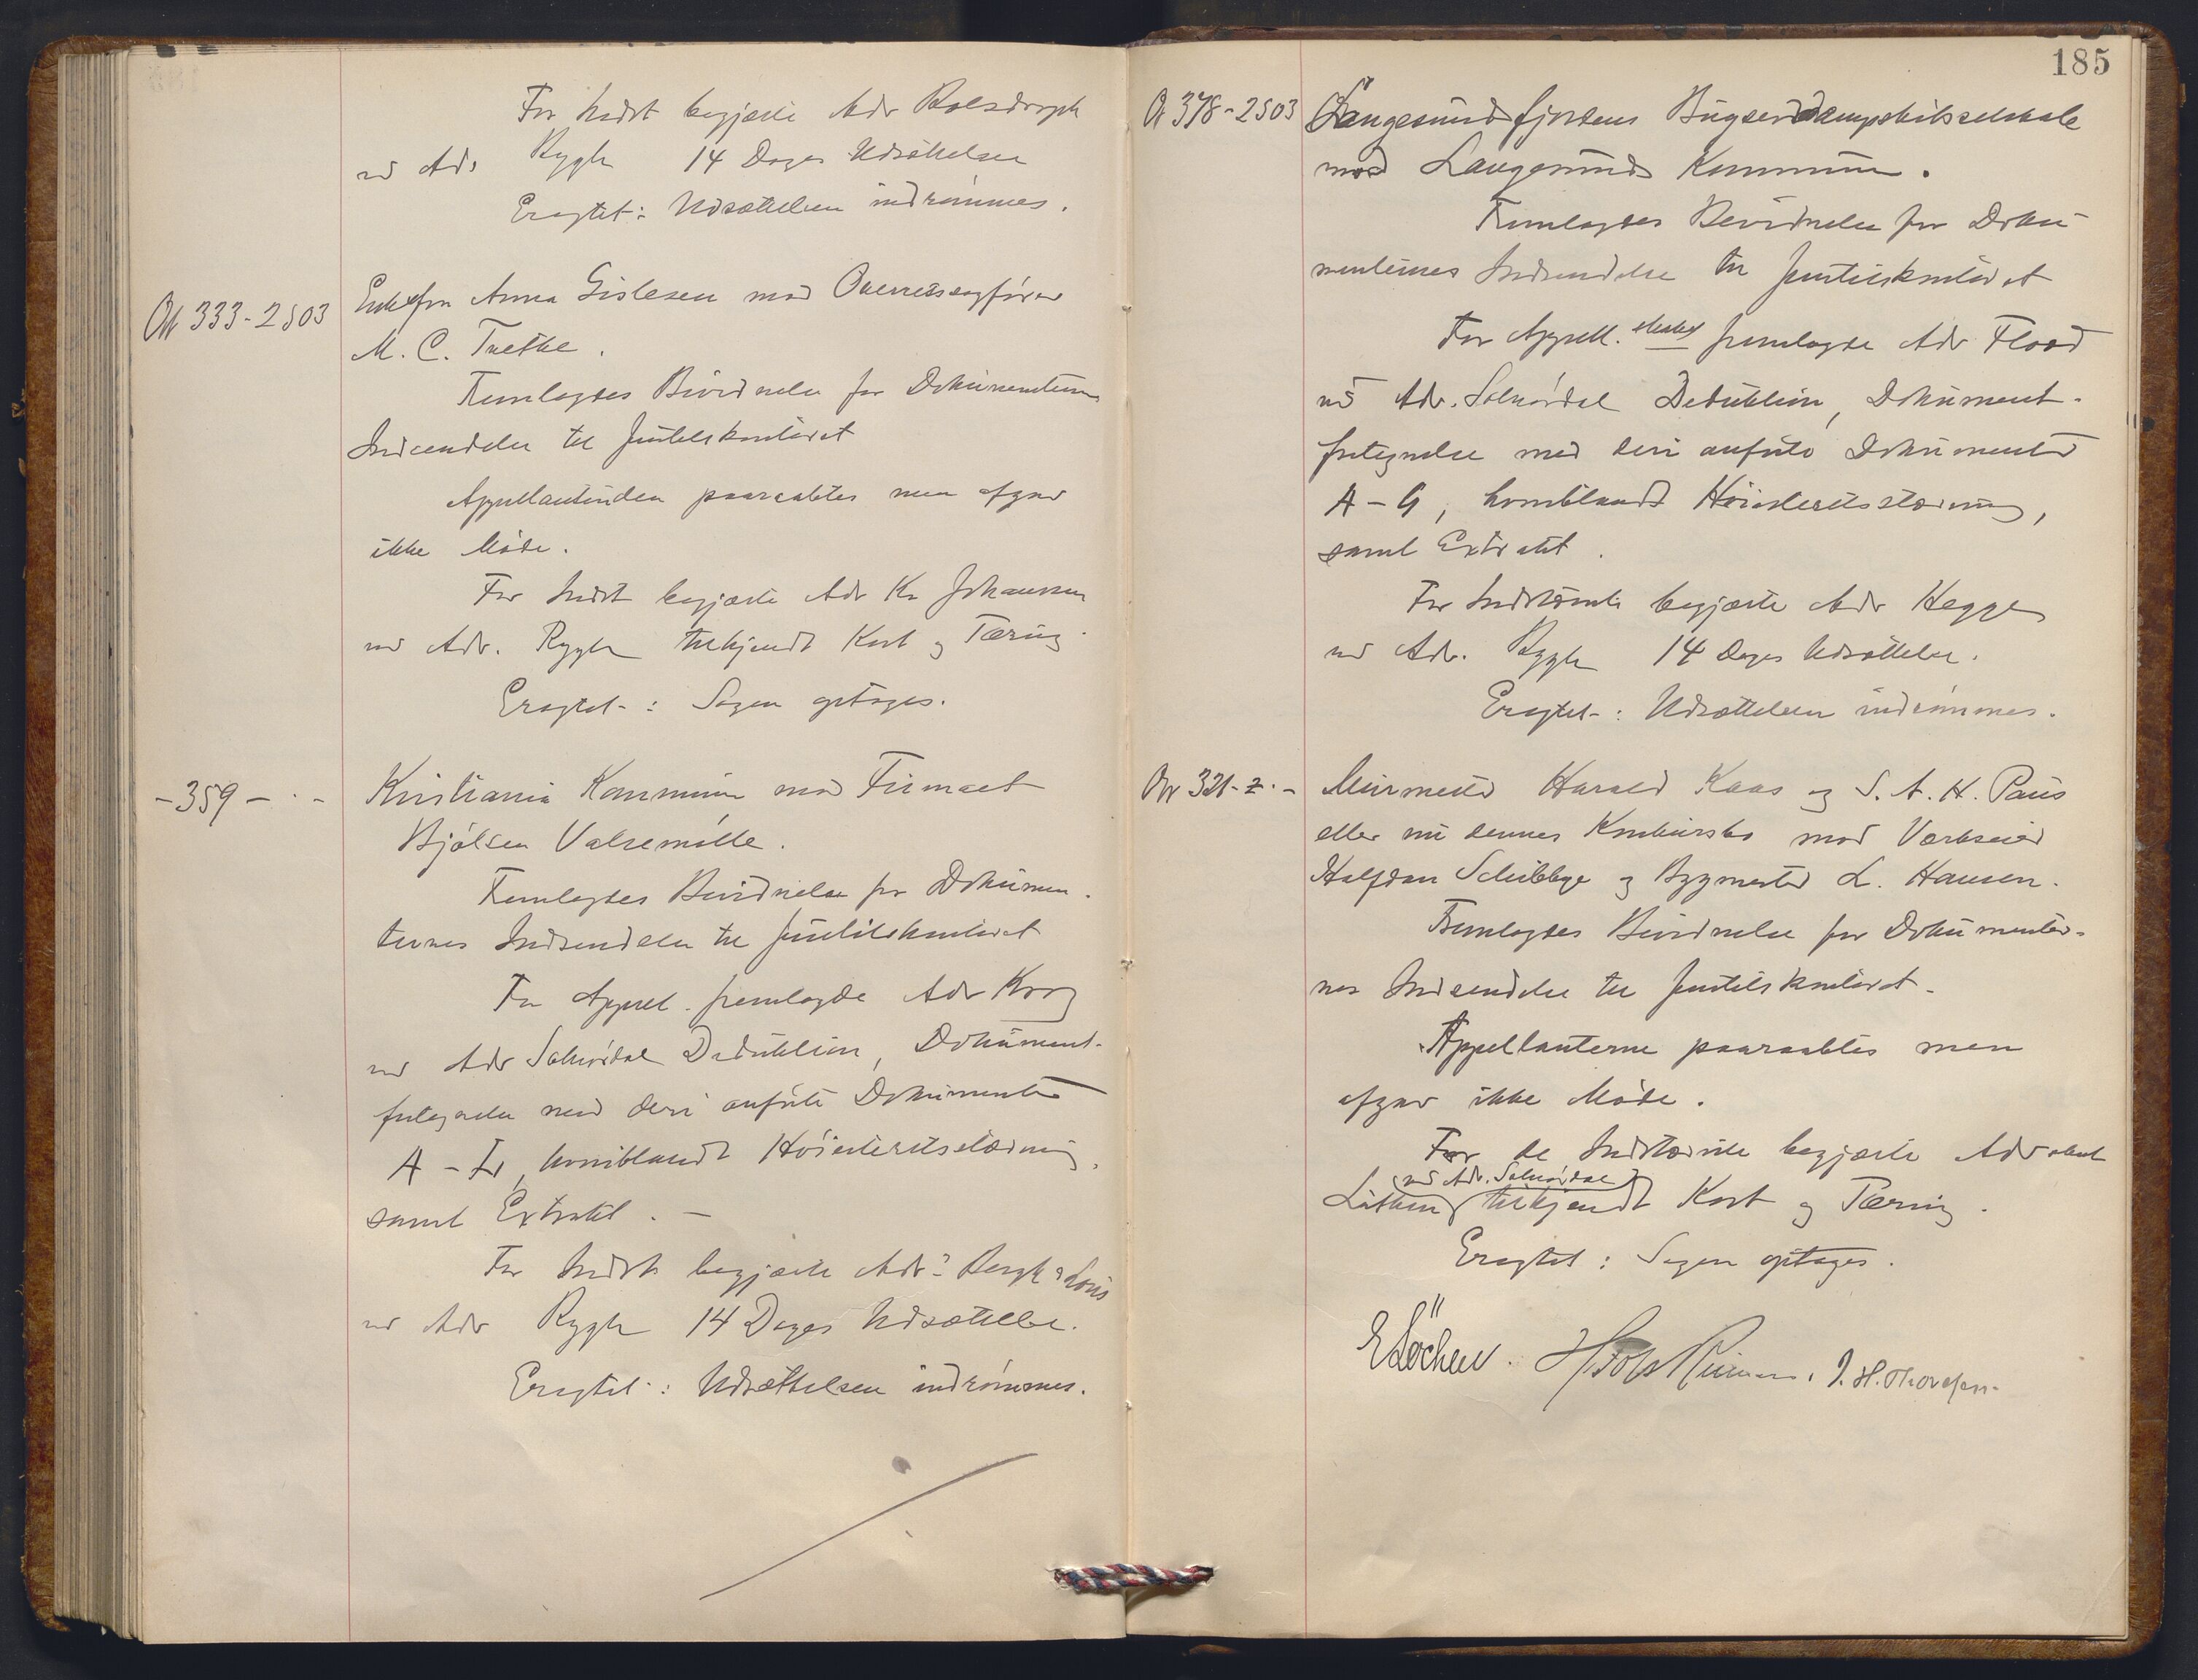 For Indst begjærte Adv
ved Adv Rygh 14 Dages Udsættelse
Eragtet: Udsættelsen indrømmes.
Ot 333-2S03
Enkefru Anna Gislesen mod Overretssagfører
M. C. Trethe.
Fremlagdes Bevidnelse for Dokumenternes
Indsendelse til Justitskontoret
Appellantinden paaraabtes men afgav
ikke Møde.
For Indst begjærte Adv Kr Johanssen
ved Adv. Rygh tilkjendt Kost og Tæring
Eragtet: Sagen optages.
- 359 - · -
Kristiania Kommune mod Firmaet
Bjølsen Valsemølle.
Fremlagdes Bevidnelse for Dokumen-
ternes Indsendelse til Justitskontoret
For Appell. fremlagde Adv Krog
ved Adv Solnørdal Deduktion, Dokument-
fortegnelse med deri anførte Dokumenter
A - L, hvoriblandt Høiesteretsstævning,
samt Extrakt. -
For Indst begjærte Adv: Bergh
ved Adv Rygh 14 Dages Udsættelse.
Eragtet: Udsættelsen indrømmes.
185
Ot 378-2S03
Langesundsfjordens Bugserdampskibsselskab
mod Langesunds Kommune.
Fremlagdes Bevidnelse for Doku-
menternes Indsendelse til Justitskontoret
For Appell. fremlagde Adv Flood
ved Adv. Solnørdal Deduktion, Dokument-
fortegnelse med deri anførte Dokumenter
A - G, hvoriblandt Høiesteretsstævning,
samt Extrakt.
For Indstævnte begjærte Adv Hegge
ved Adv. Rygh 14 Dages Udsættelse.
Eragtet: Udsættelsen indrømmes.
Ov 321-2 · -
Murmester Harald Kaas og S. A. H. Paus
eller nu dennes Konkursbo mod Værkseier
Halfdan Schibbye og Bygmester L. Hansen.
Fremlagdes Bevidnelse for Dokumenter-
nes Indsendelse til Justitskontoret.
Appellanterne paaraabtes men
afgav ikke Møde.
For de Indstævnte begjærte Advokat
ved Adv. Solnørdal
Lütken tilkjendt Kost og Tæring.
Eragtet: Sagen optages.
E Løchen. J. H. Thoresen.